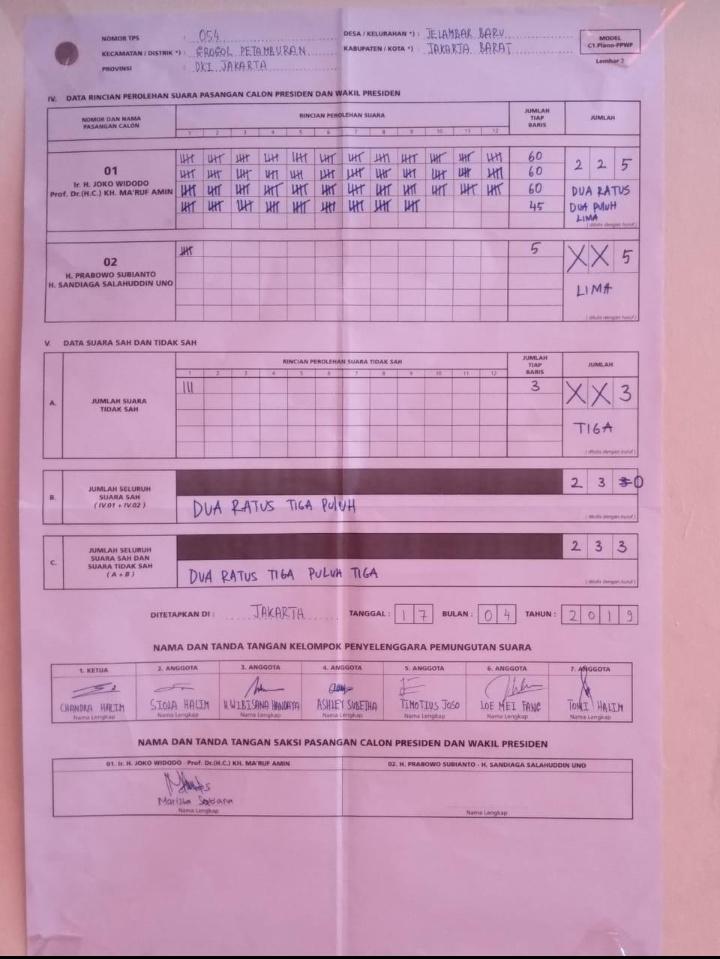 NOMOR TPS : 054
DESA / KELURAHAN *) : JELAMBAR BARU
MODEL
C1.Plano-PPWP
KECAMATAN / DISTRIK *) : GROGOL PETAMBURAN
KABUPATEN / KOTA *) : JAKARTA BARAT
PROVINSI : DKI JAKARTA
Lembar 2
IV. DATA RINCIAN PEROLEHAN SUARA PASANGAN CALON PRESIDEN DAN WAKIL PRESIDEN
NOMOR DAN NAMA PASANGAN CALON
RINCIAN PEROLEHAN SUARA
JUMLAH TIAP BARIS
JUMLAH
1 2 3 4 5 6 7 8 9 10 11 12
01
Ir. H. JOKO WIDODO
Prof. Dr.(H.C.) KH. MA'RUF AMIN
60
60
60
45
2 2 5
DUA RATUS
DUA PULUH
LIMA
( ditulis dengan huruf )
02
H. PRABOWO SUBIANTO
H. SANDIAGA SALAHUDDIN UNO
5
X X 5
LIMA
( ditulis dengan huruf )
V. DATA SUARA SAH DAN TIDAK SAH
RINCIAN PEROLEHAN SUARA TIDAK SAH
JUMLAH TIAP BARIS
JUMLAH
1 2 3 4 5 6 7 8 9 10 11 12
A. JUMLAH SUARA TIDAK SAH
III
3
X X 3
TIGA
( ditulis dengan huruf )
B. JUMLAH SELURUH SUARA SAH ( IV.01 + IV.02 )
2 3 0
DUA RATUS TIGA PULUH
( ditulis dengan huruf )
C. JUMLAH SELURUH SUARA SAH DAN SUARA TIDAK SAH ( A + B )
2 3 3
DUA RATUS TIGA PULUH TIGA
( ditulis dengan huruf )
DITETAPKAN DI : JAKARTA TANGGAL : 17 BULAN : 04 TAHUN : 2019
NAMA DAN TANDA TANGAN KELOMPOK PENYELENGGARA PEMUNGUTAN SUARA
1. KETUA 2. ANGGOTA 3. ANGGOTA 4. ANGGOTA 5. ANGGOTA 6. ANGGOTA 7. ANGGOTA
CHANDRA HALIM
TIMOTIUS JOSO
HALIM
Nama Lengkap Nama Lengkap Nama Lengkap Nama Lengkap Nama Lengkap Nama Lengkap Nama Lengkap
NAMA DAN TANDA TANGAN SAKSI PASANGAN CALON PRESIDEN DAN WAKIL PRESIDEN
01. Ir. H. JOKO WIDODO - Prof. Dr.(H.C.) KH. MA'RUF AMIN
02. H. PRABOWO SUBIANTO - H. SANDIAGA SALAHUDDIN UNO
Nama Lengkap
Nama Lengkap